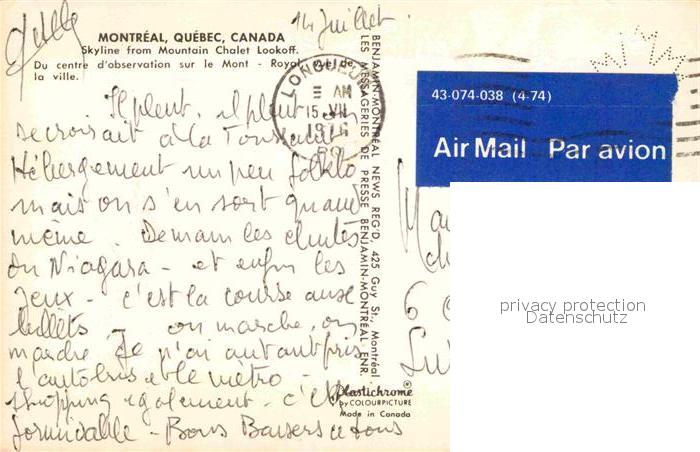 14 Juillet.
MONTRÉAL, QUÉBEC, CANADA
Skyline from Mountain Chalet Lookoff.
Du centre d'observation sur le Mont - Royal, vue de
la ville.
LONGUEUIL
AM
15 VII
1976
P Q
BENJAMIN-MONTRÉAL NEWS REG'D, 425 Guy St., Montréal
LES MESSAGERIES DE PRESSE BENJAMIN-MONTRÉAL ENR.
43-074-038 (4-74)
Air Mail Par avion
Il pleut, il pleut on
se croirait à la Toussaint
Hébergement un peu folklo
mais on s'en sort quand
même. Demain les chutes
du Niagara - et enfin les
Jeux - c'est la course aux
billets - on marche, on
marche Je n'ai autant pris
l'autobus et le métro -
Shopping également - c'est
formidable - Bons Baisers à tous
Plastichrome ®
by COLOURPICTURE
Made in Canada
privacy protection
Datenschutz
6